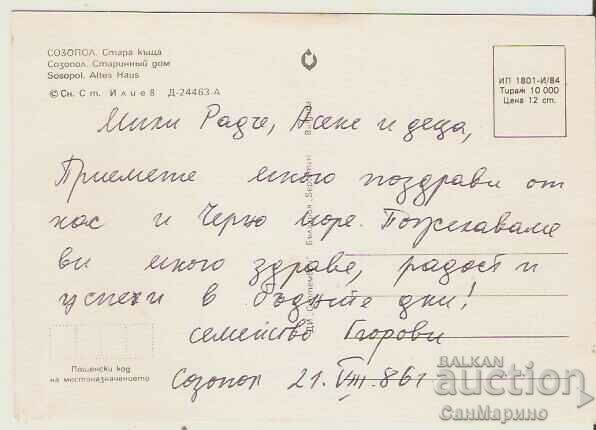 СОЗОПОЛ. Стара къща
Созопол. Старинный дом
Sosopol. Altes Haus
© Сн. Ст. Илиев Д-24463-А
ИП 1801-И/84
Тираж 10 000
Цена 12 ст.
Мили Радче, Асене и деца,
Приемете много поздрави от
нас и Черно море. Пожелаваме
ви много здраве, радост и
успехи в бъдните дни!
семейство Егорови
Созопол 21. VIII. 86 г
Пощенски код
на местоназначението
ДИ „Септември" България
BALKAN
auction
СанМарино